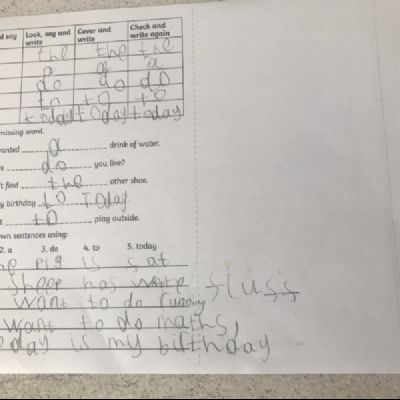 say Look, say and write Cover and write Check and write again
the the the
a a a
do do do
to to to
today today today
missing word.
anted a drink of water.
do you live?
t find the other shoe.
y birthday to Today.
to play outside.
wn sentences using:
2. a 3. do 4. to 5. today
he pig is sat
Sheep has
want to do running
want to do maths,
day is my birthday